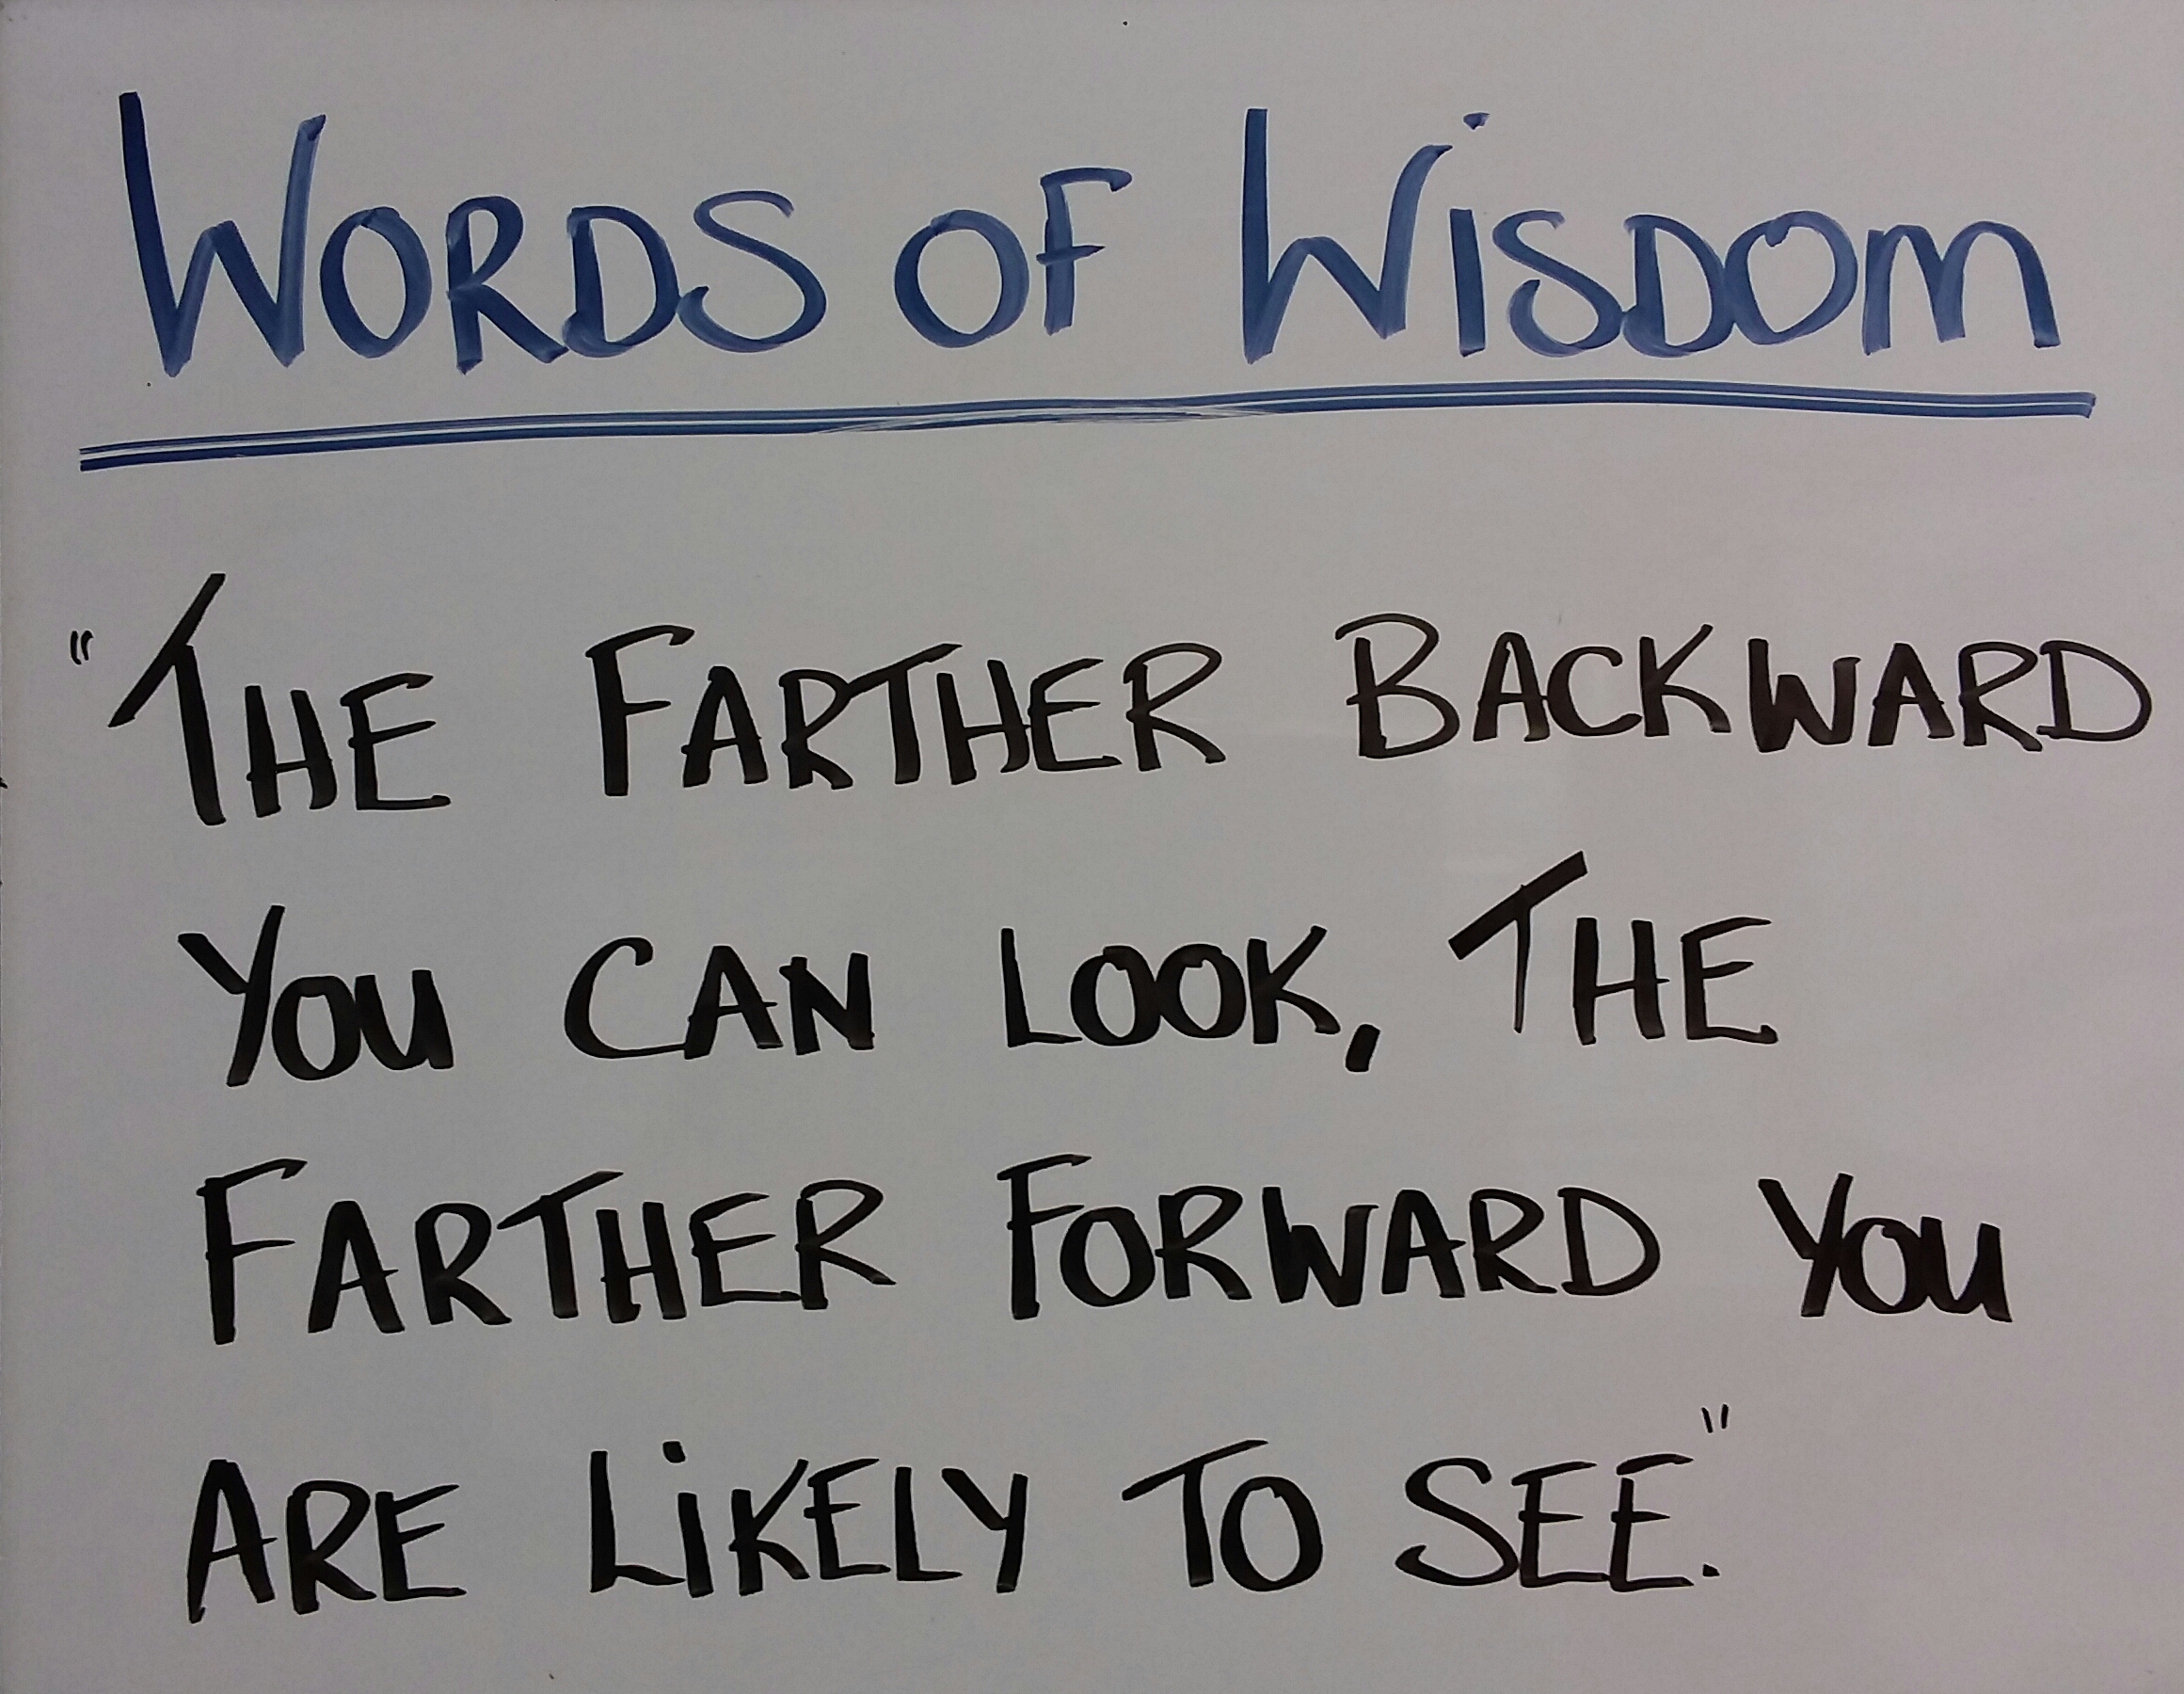 WORDS OF WiSDOM
"THE FARTHER BACKWARD
YOU CAN LOOK, THE
FARTHER FORWARD YOU
ARE LiKELY TO SEE."